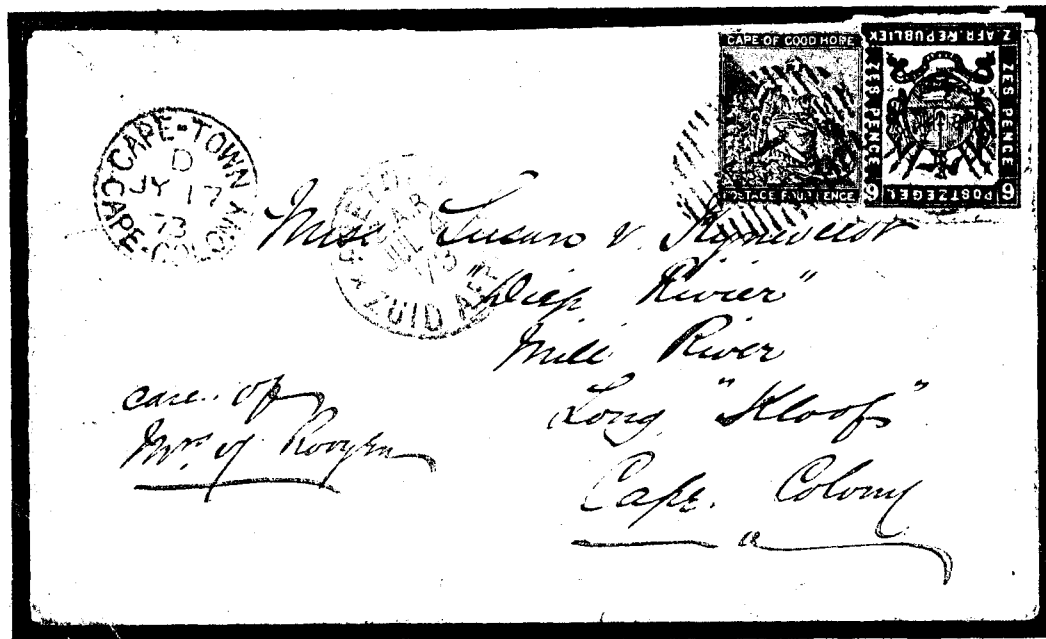 CAPE OF GOOD HOPE
POSTAGE FOUR PENCE
Z. AFR. REPUBLIEK
ZES PENCE
ZES PENCE
6 POSTZEGEL 6
CAPE-TOWN
D
JY 17
73
CAPE-COLONY
JUL
73
ZUID AFR
Miss Susan v.
"Diep Rivier"
Mill River
Long "Kloof"
Cape. Colony
care. of
Mrs